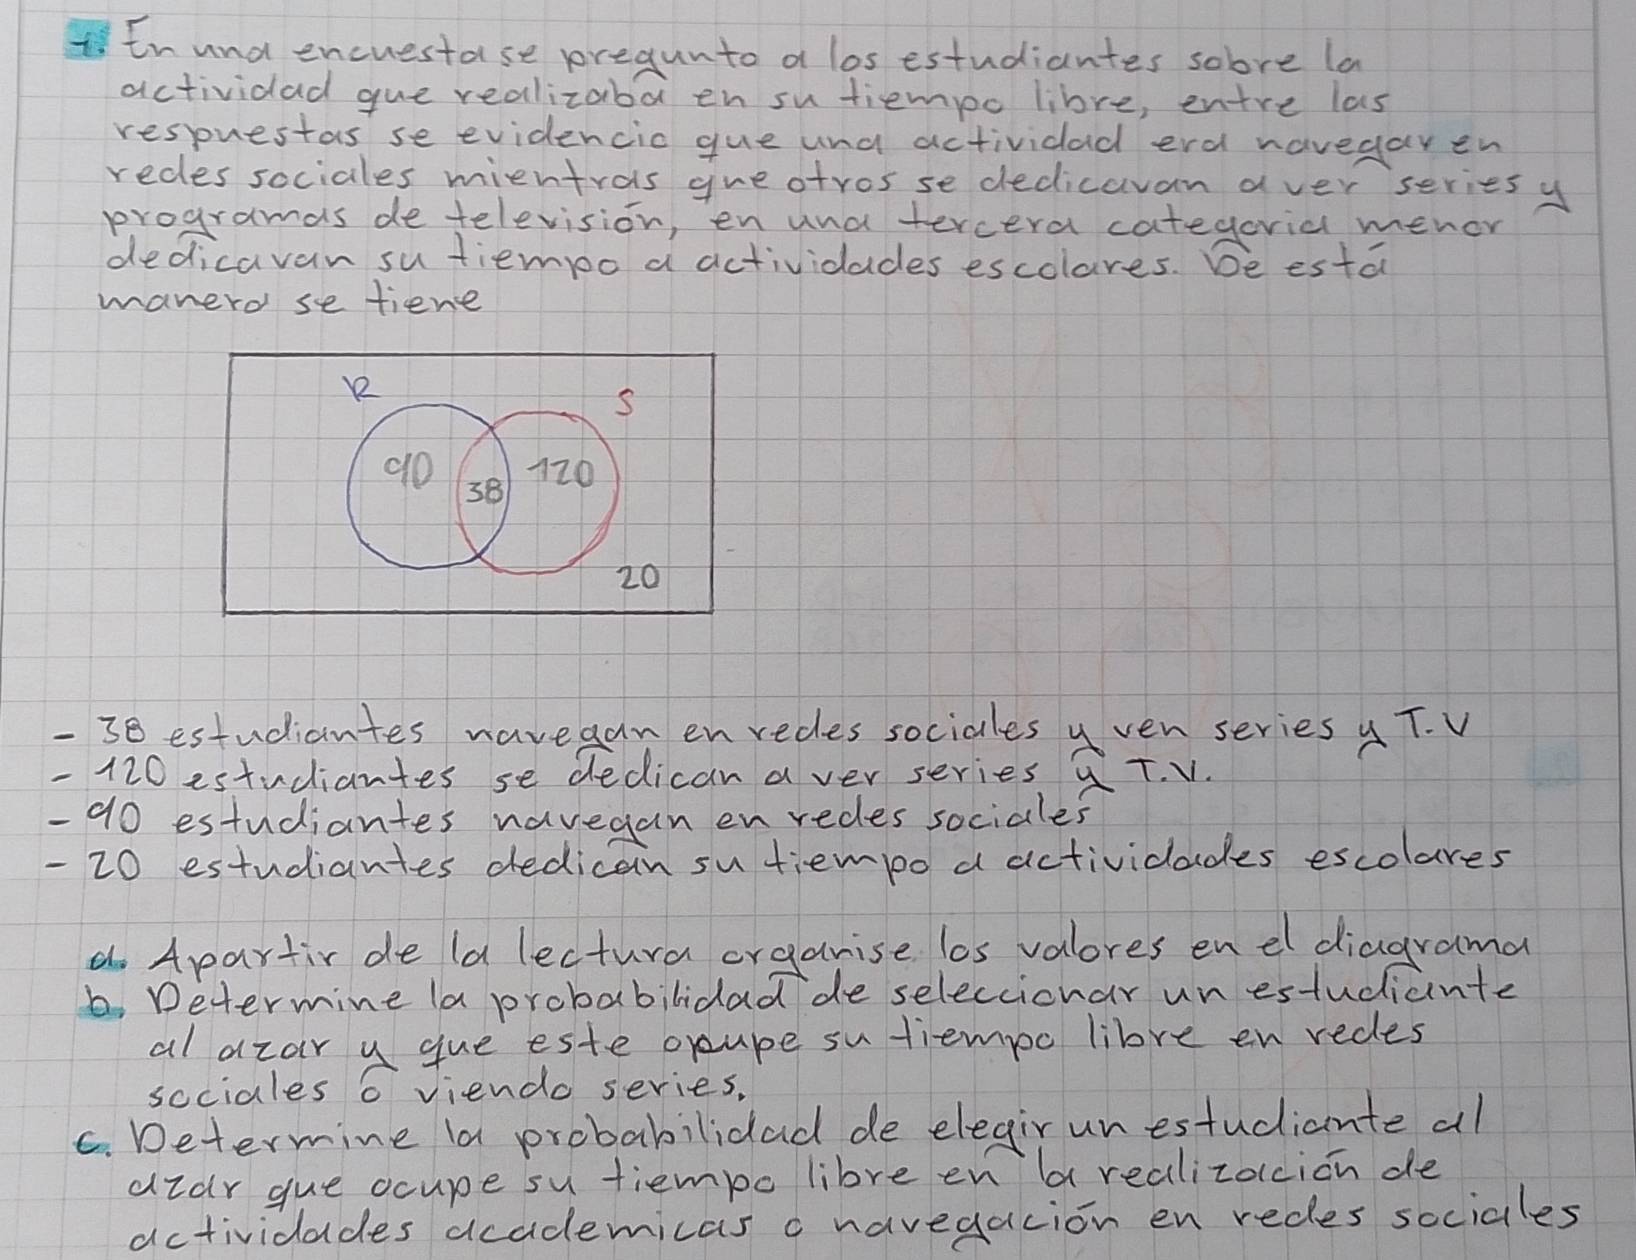 1. En una encuesta se pregunto a los estudiantes sobre la
actividad que realizaba en su tiempo libre, entre las
respuestas se evidencio que una actividad era navegar en
redes sociales mientras que otros se dedicavan a ver series y
programas de televisión, en una tercera categoria menor
dedicavan su tiempo a actividades escolares. De está
manera se tiene
R
S
90
38
120
20
- 38 estudiantes navegan en redes sociales y ven series y T.V
- 120 estudiantes se dedican a ver series y T.V.
- 90 estudiantes navegan en redes sociales
- 20 estudiantes dedican su tiempo a actividades escolares
a. Apartir de la lectura organise los valores en el diagrama
b. Determine la probabilidad de seleccionar un estudiante
al azar y que este ocupe su tiempo libre en redes
sociales ó viendo series.
c. Determine la probabilidad de elegir un estudiante al
azar que ocupe su tiempo libre en la realización de
actividades academicas o navegación en redes sociales